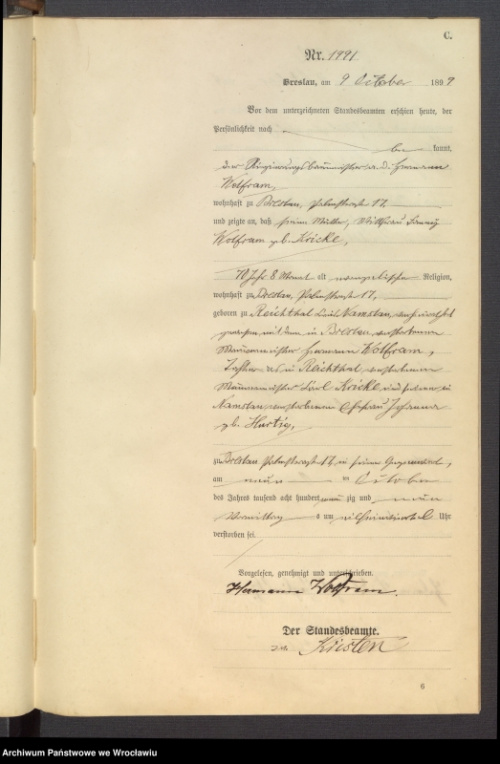 C.
Nr. 1991
Breslau, am 9 October 1899
Vor dem unterzeichneten Standesbeamten erschien heute, der
Persönlichkeit nach
be kannt,
der Regierungsbaumeister a. d. Hermann
Wolfram,
wohnhaft zu Breslau, Palmstraße 17,
und zeigte an, daß seine Mutter, Wittfrau Fanny
Wolfram geb. Krickl,
70 Jahr 8 Monat alt evangelischer Religion,
wohnhaft zu Breslau, Palmstraße 17,
geboren zu Reichthal Kreis Namslau, verheirathet
gewesen mit dem in Breslau verstorbenen
Maurermeister Hermann Wolfram,
Tochter des in Reichthal verstorbenen
Maurermeister Carl Krickl und seiner in
Namslau verstorbenen Ehefrau Johanna
geb. Hartig,
zu Breslau Palmstraße 17, in seiner Gegenwart,
am neun ten October
des Jahres tausend acht hundert neun zig und neun
Vormittag s um Uhr
verstorben sei.
Vorgelesen, genehmigt und unterschrieben.
Hermann Wolfram.
Der Standesbeamte.
Kirsten
6
Archiwum Państwowe we Wrocławiu